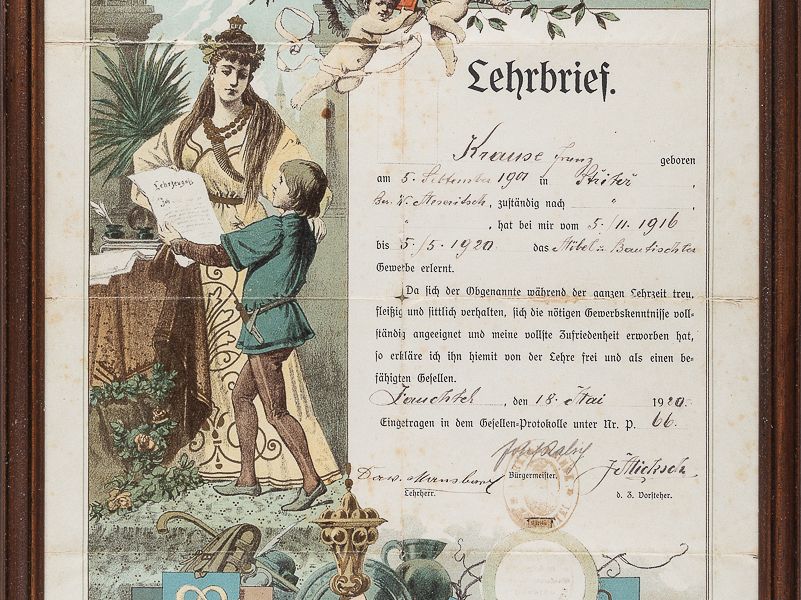 Lehrbrief.
Lehrzeugnis
Krause Franz geboren
am 5. September 1901 in
zuständig nach " ,
" , hat bei mir vom 5./11. 1916
bis 5./5. 1920. das Möbel u. Bautischler
Gewerbe erlernt.
Da sich der Obgenannte während der ganzen Lehrzeit treu,
fleißig und sittlich verhalten, sich die nötigen Gewerbskenntnisse voll-
ständig angeeignet und meine vollste Zufriedenheit erworben hat,
so erkläre ich ihn hiemit von der Lehre frei und als einen be-
fähigten Gesellen.
Zauchtel , den 18. Mai 1920.
Eingetragen in dem Gesellen-Protokolle unter Nr. P. 66.
Lehrherr. Bürgermeister. d. Z. Vorsteher.